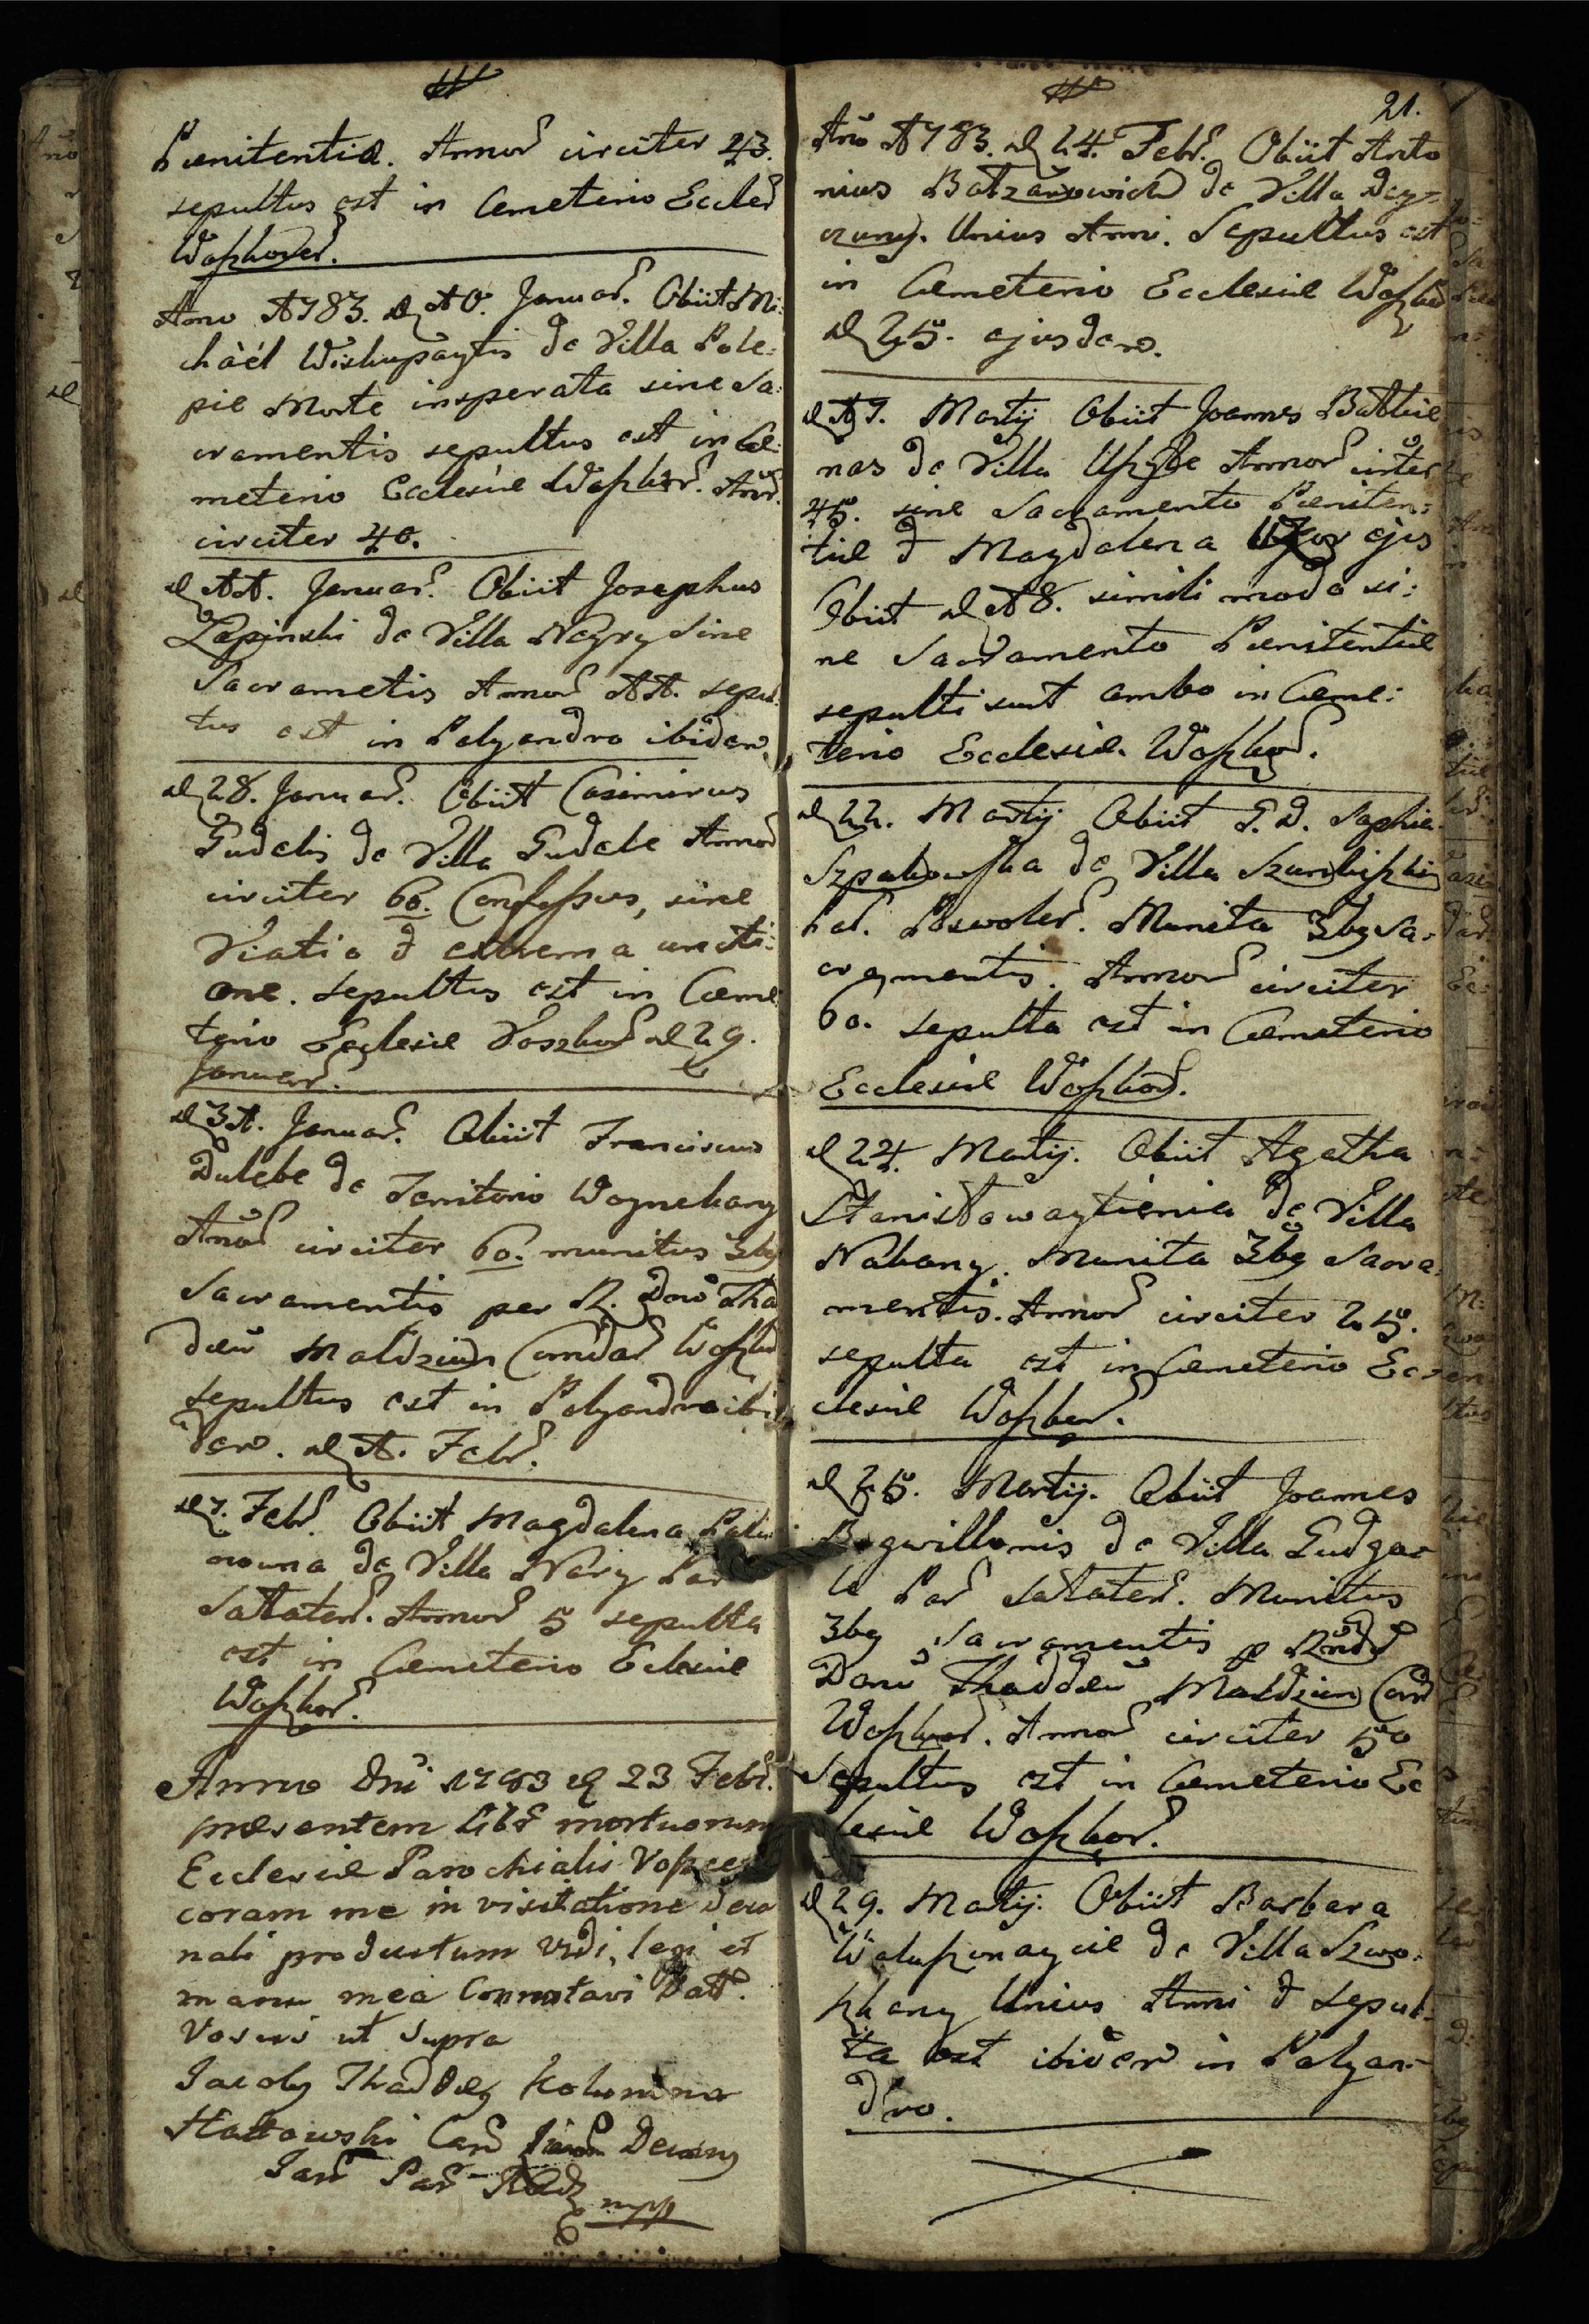 Pœnitentiæ. Annor circiter 23.
sepultus est in Cemeterio Eccles
Woszkoner.
Anno 1783. d 10. Januar. Obiit Mi:
chàèl Wiskupaytis de Villa Pole:
piæ Morte insperata sine Sa:
cramentis sepultus est in Cæ:
meterio Ecclesiæ Woszkor. Anor.
circiter 40.
d 11. Januar. Obiit Josephus
Lapinski de Villa Nayry Sine
Sacrametis Annor 11. sepul
tus est in Polyandro ibidem
d 28. Januar. Obiit Casimirus
Gudelis de Villa Gudele Annor
circiter 60. Confessus, sine
Viatio & extrema uncti:
one. Sepultus est in Cæme
terio Ecclesiæ Voszkor d 29.
Januar.
d 31. Januar. Obiit Franciscus
Dulebe de Territorio Woynekany
Anor circiter 60. munitus 3bg
Sacramentis per R. Dnū Tha
deū Maldziun Comdar Woszko
Sepultus est in Polyandro ibi
dem. d 1. Febr.
d 7. Febr. Obiit Magdalena
nowna de Villa Nariy Par
Satkater. Annor 5 sepulta
est in Cæmeterio Eclesiæ
Woszkor.
Anno Dni 1783 d 23 Febr.
præsentem Libr mortuorum
Ecclesiæ Parochialis
coram me in visitatione Deca
nali productum Vidi, legi et
manu mea Connotavi Datt.
Voscuis ut Supra
Jacoby Thaddeg Kolumna
Can Decany
Par
mpp
21.
Año 1783. d 24. Febr. Obiit Anto
nius Batzanowich de Villa Dey-
czuny. Unius Anni. Sepultus est
in Cæmeterio Ecclesiæ Woszko
d 25. ejusdem.
d 17. Martij Obiit Joannes Butkie
nas de Villa Upyte Annor cirter
45. sine Sacramento Pœniten:
tiæ & Magdalena Uxor ejus
Obiit d 18. simili modo si:
ne Sacramento Pœnitentiæ
sepulti sunt ambo in Cæme:
terio Ecclesiæ Woszkor.
d 22. Martij Obiit G. D. Sophia
Szpakowska de Villa Szurkiszki
Par. Poswoler. Munita 3bg Sa:
cramentis. Annor circiter
60. sepulta est in Cæmeterio
Ecclesiæ Woszkor.
d 24. Martij. Obiit Agatha
Stanisławaytienia de Villa
Nakany. Munita 3bg Sacra:
mentis. Annor circiter 25.
sepulta est in Cæmeterio Ec
clesiæ Woszkor.
d 25. Martij. Obiit Joannes
Bogwillonis de Villa Gudga
le Par Satkater. Munitus
3bg Sacramentis p Rndū
Donū Thaddeū Maldziun Com
Woszkor. Annor circiter 50
Sepultus est in Cemeterio Ec
lesiæ Woszkor.
d 29. Martij. Obiit Barbara
Waluszonaycie de Villa Szwo.
szkany Unius Anni & Sepul:
ta est ibidem in Polyan-
dro.